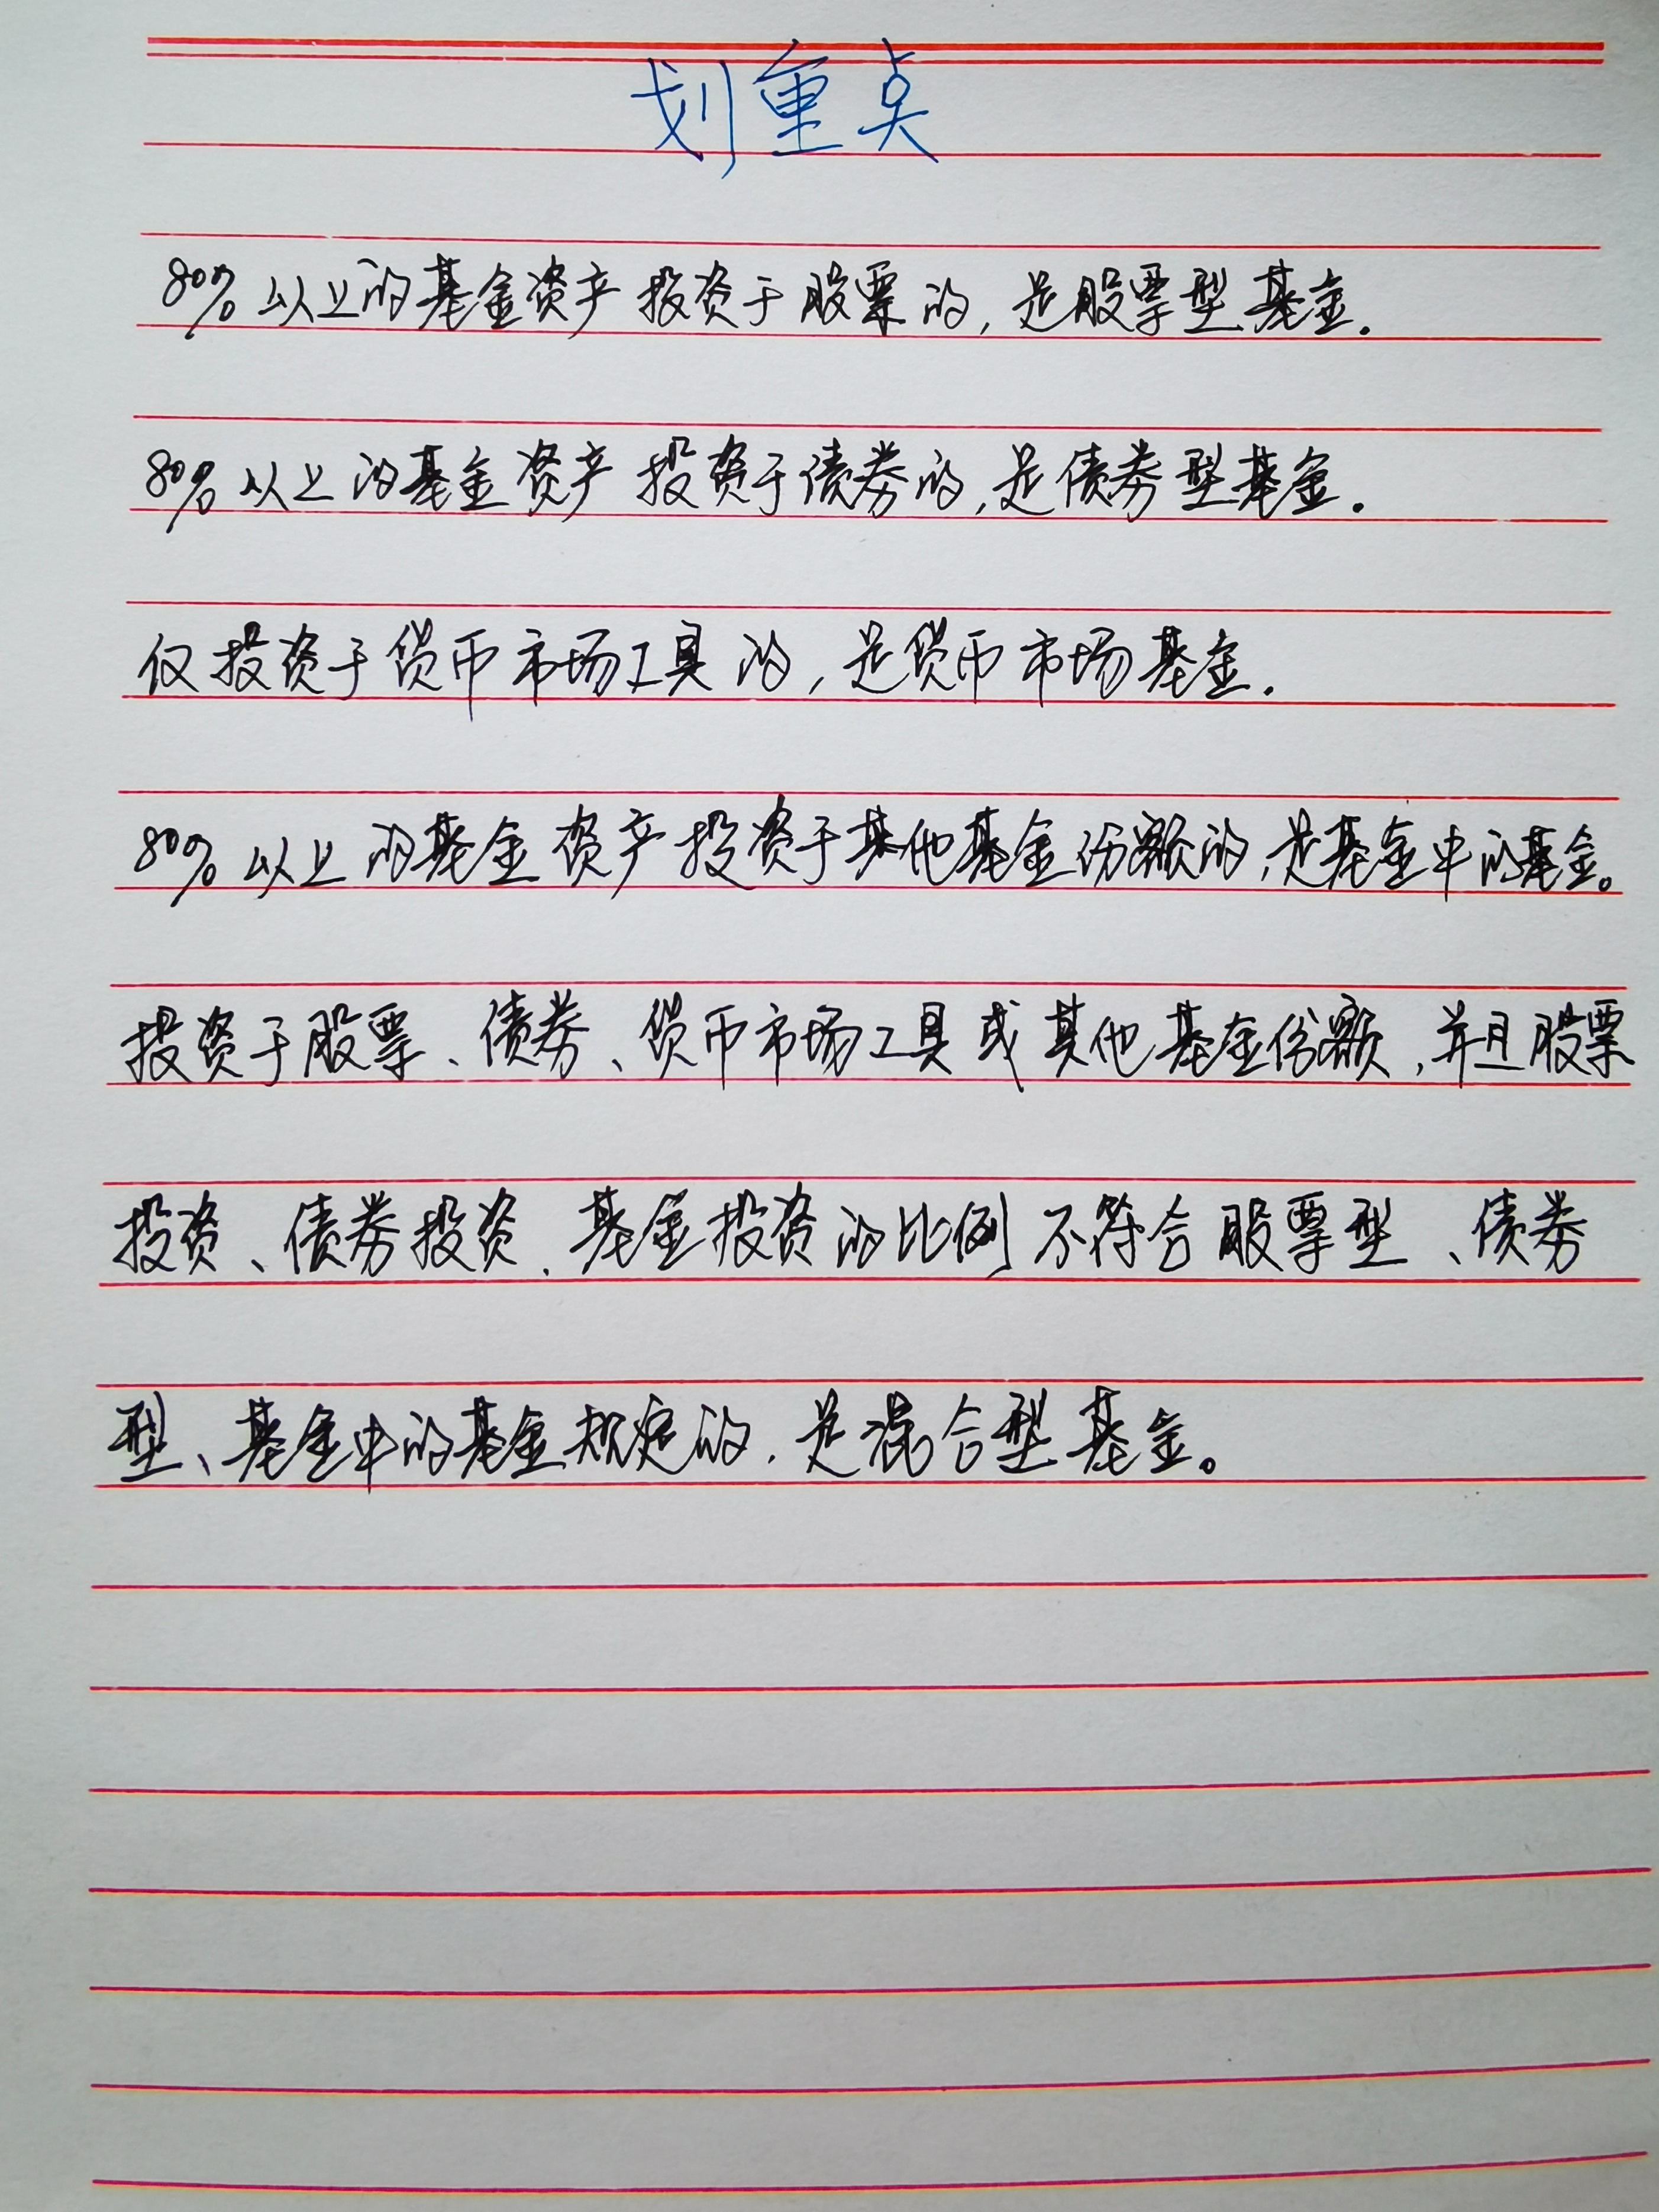 划重点
80%以上的基金资产投资于股票的,是股票型基金.
80%以上的基金资产投资于债券的,是债券型基金.
仅投资于货币市场工具的,是货币市场基金.
80%以上的基金资产投资于其他基金份额的,是基金中的基金。
投资于股票、债券、货币市场工具或其他基金份额,并且股票
投资、债券投资、基金投资的比例不符合股票型、债券
型、基金中的基金规定的,是混合型基金。